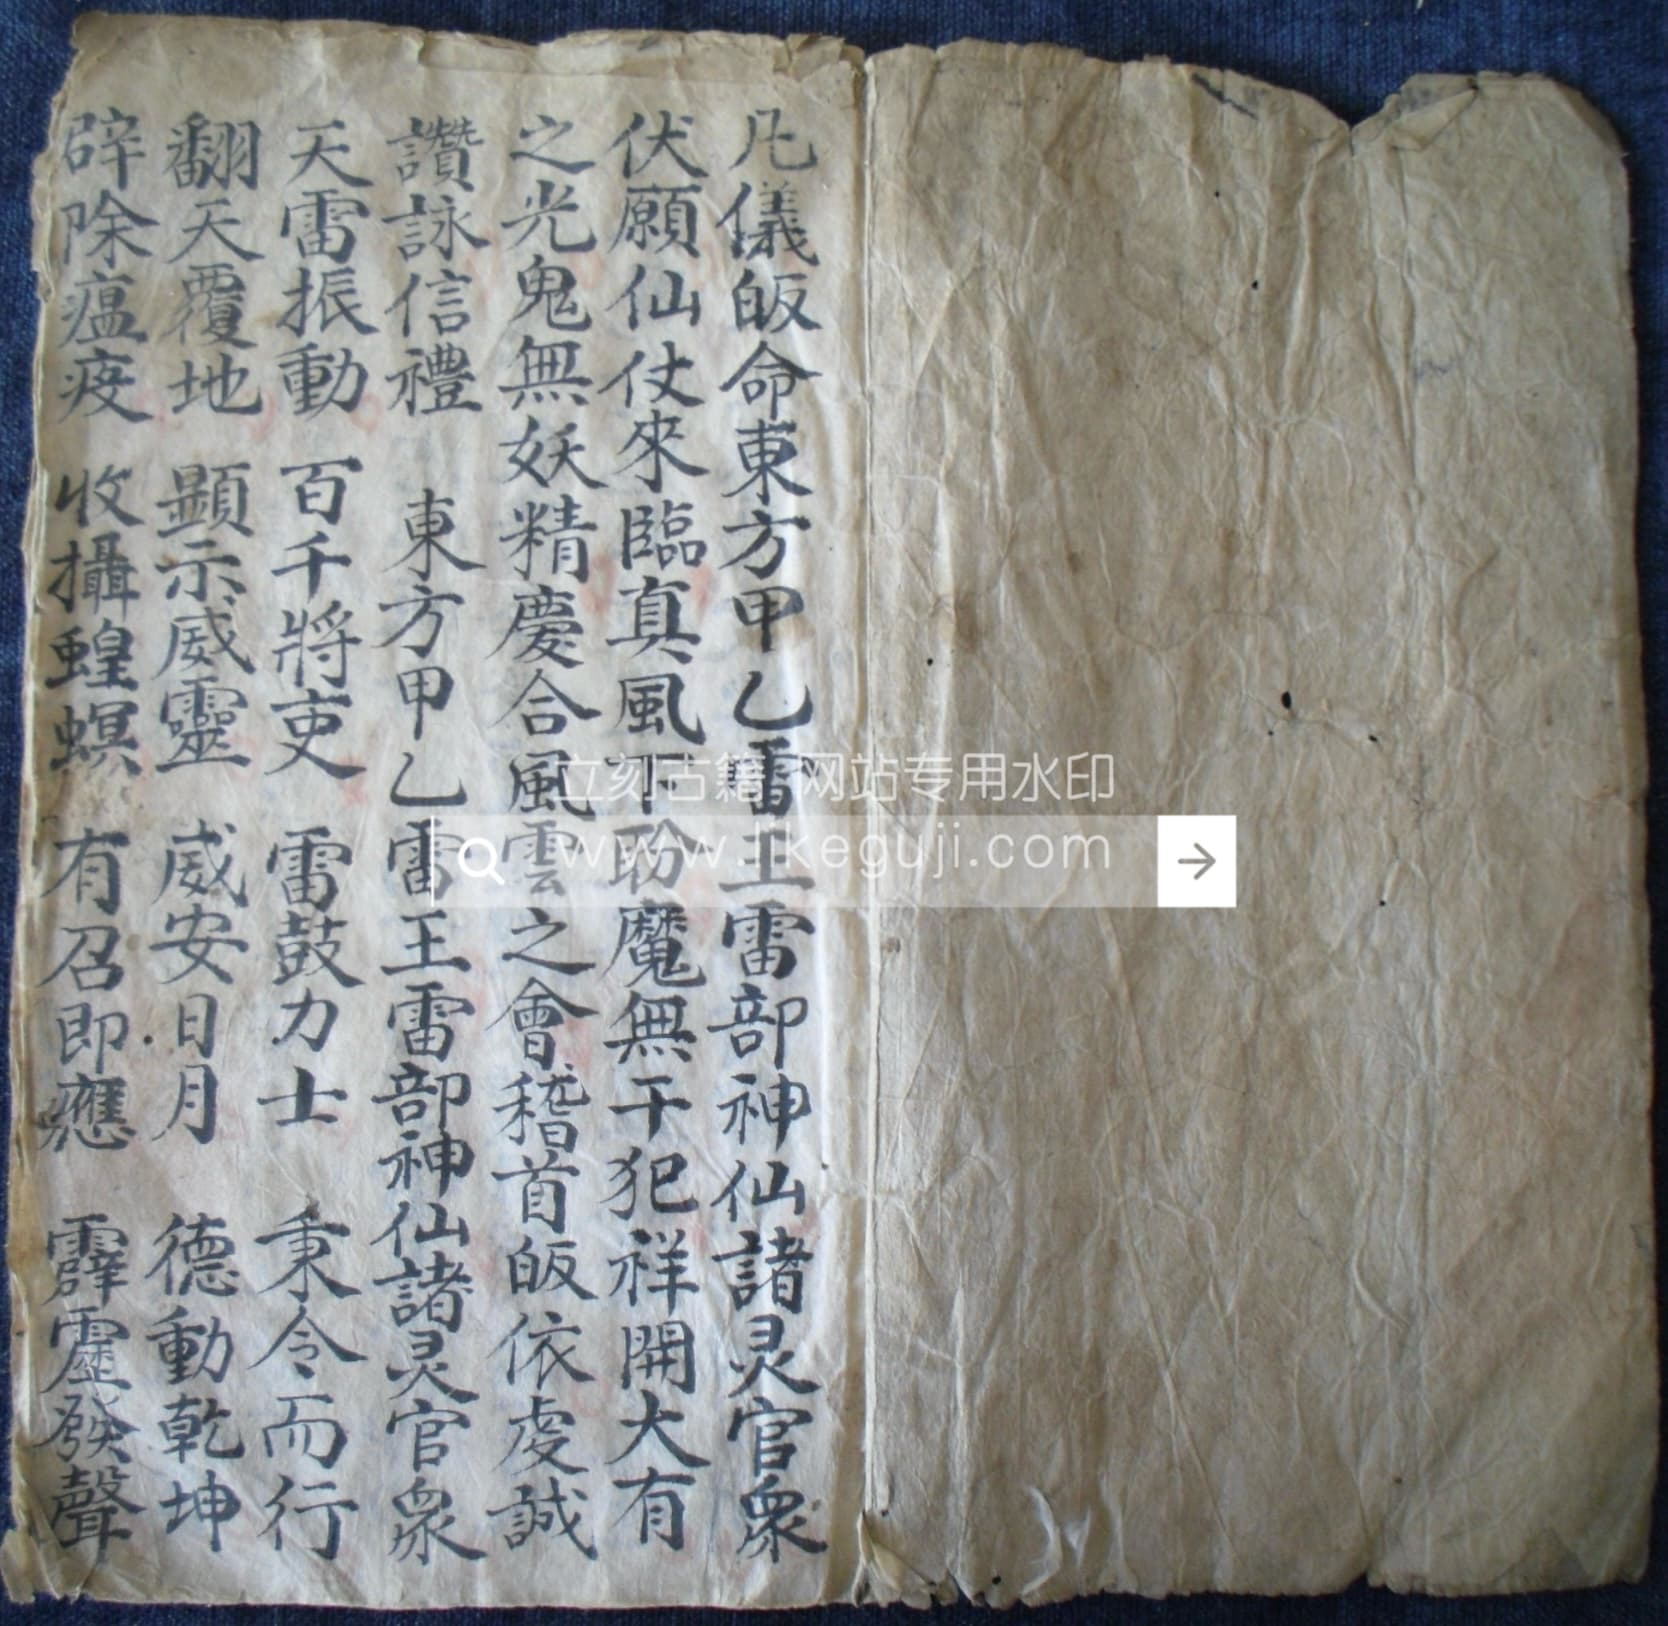 凡儀皈命東方甲乙雷王雷部神仙諸灵官衆
伏願仙仗來臨真風下盼魔無干犯祥開大有
之光鬼無妖精慶合風雲之會稽首皈依虔誠
讚詠信禮 東方甲乙雷王雷部神仙諸灵官衆
天雷振動 百千將吏 雷鼓力士 秉令而行
翻天覆地 顯示威靈 威安日月 德動乾坤
辟除瘟疫 收攝蝗螟 有召即應 霹靂發聲
立刻古籍 网站专用水印
www.likeguji.com